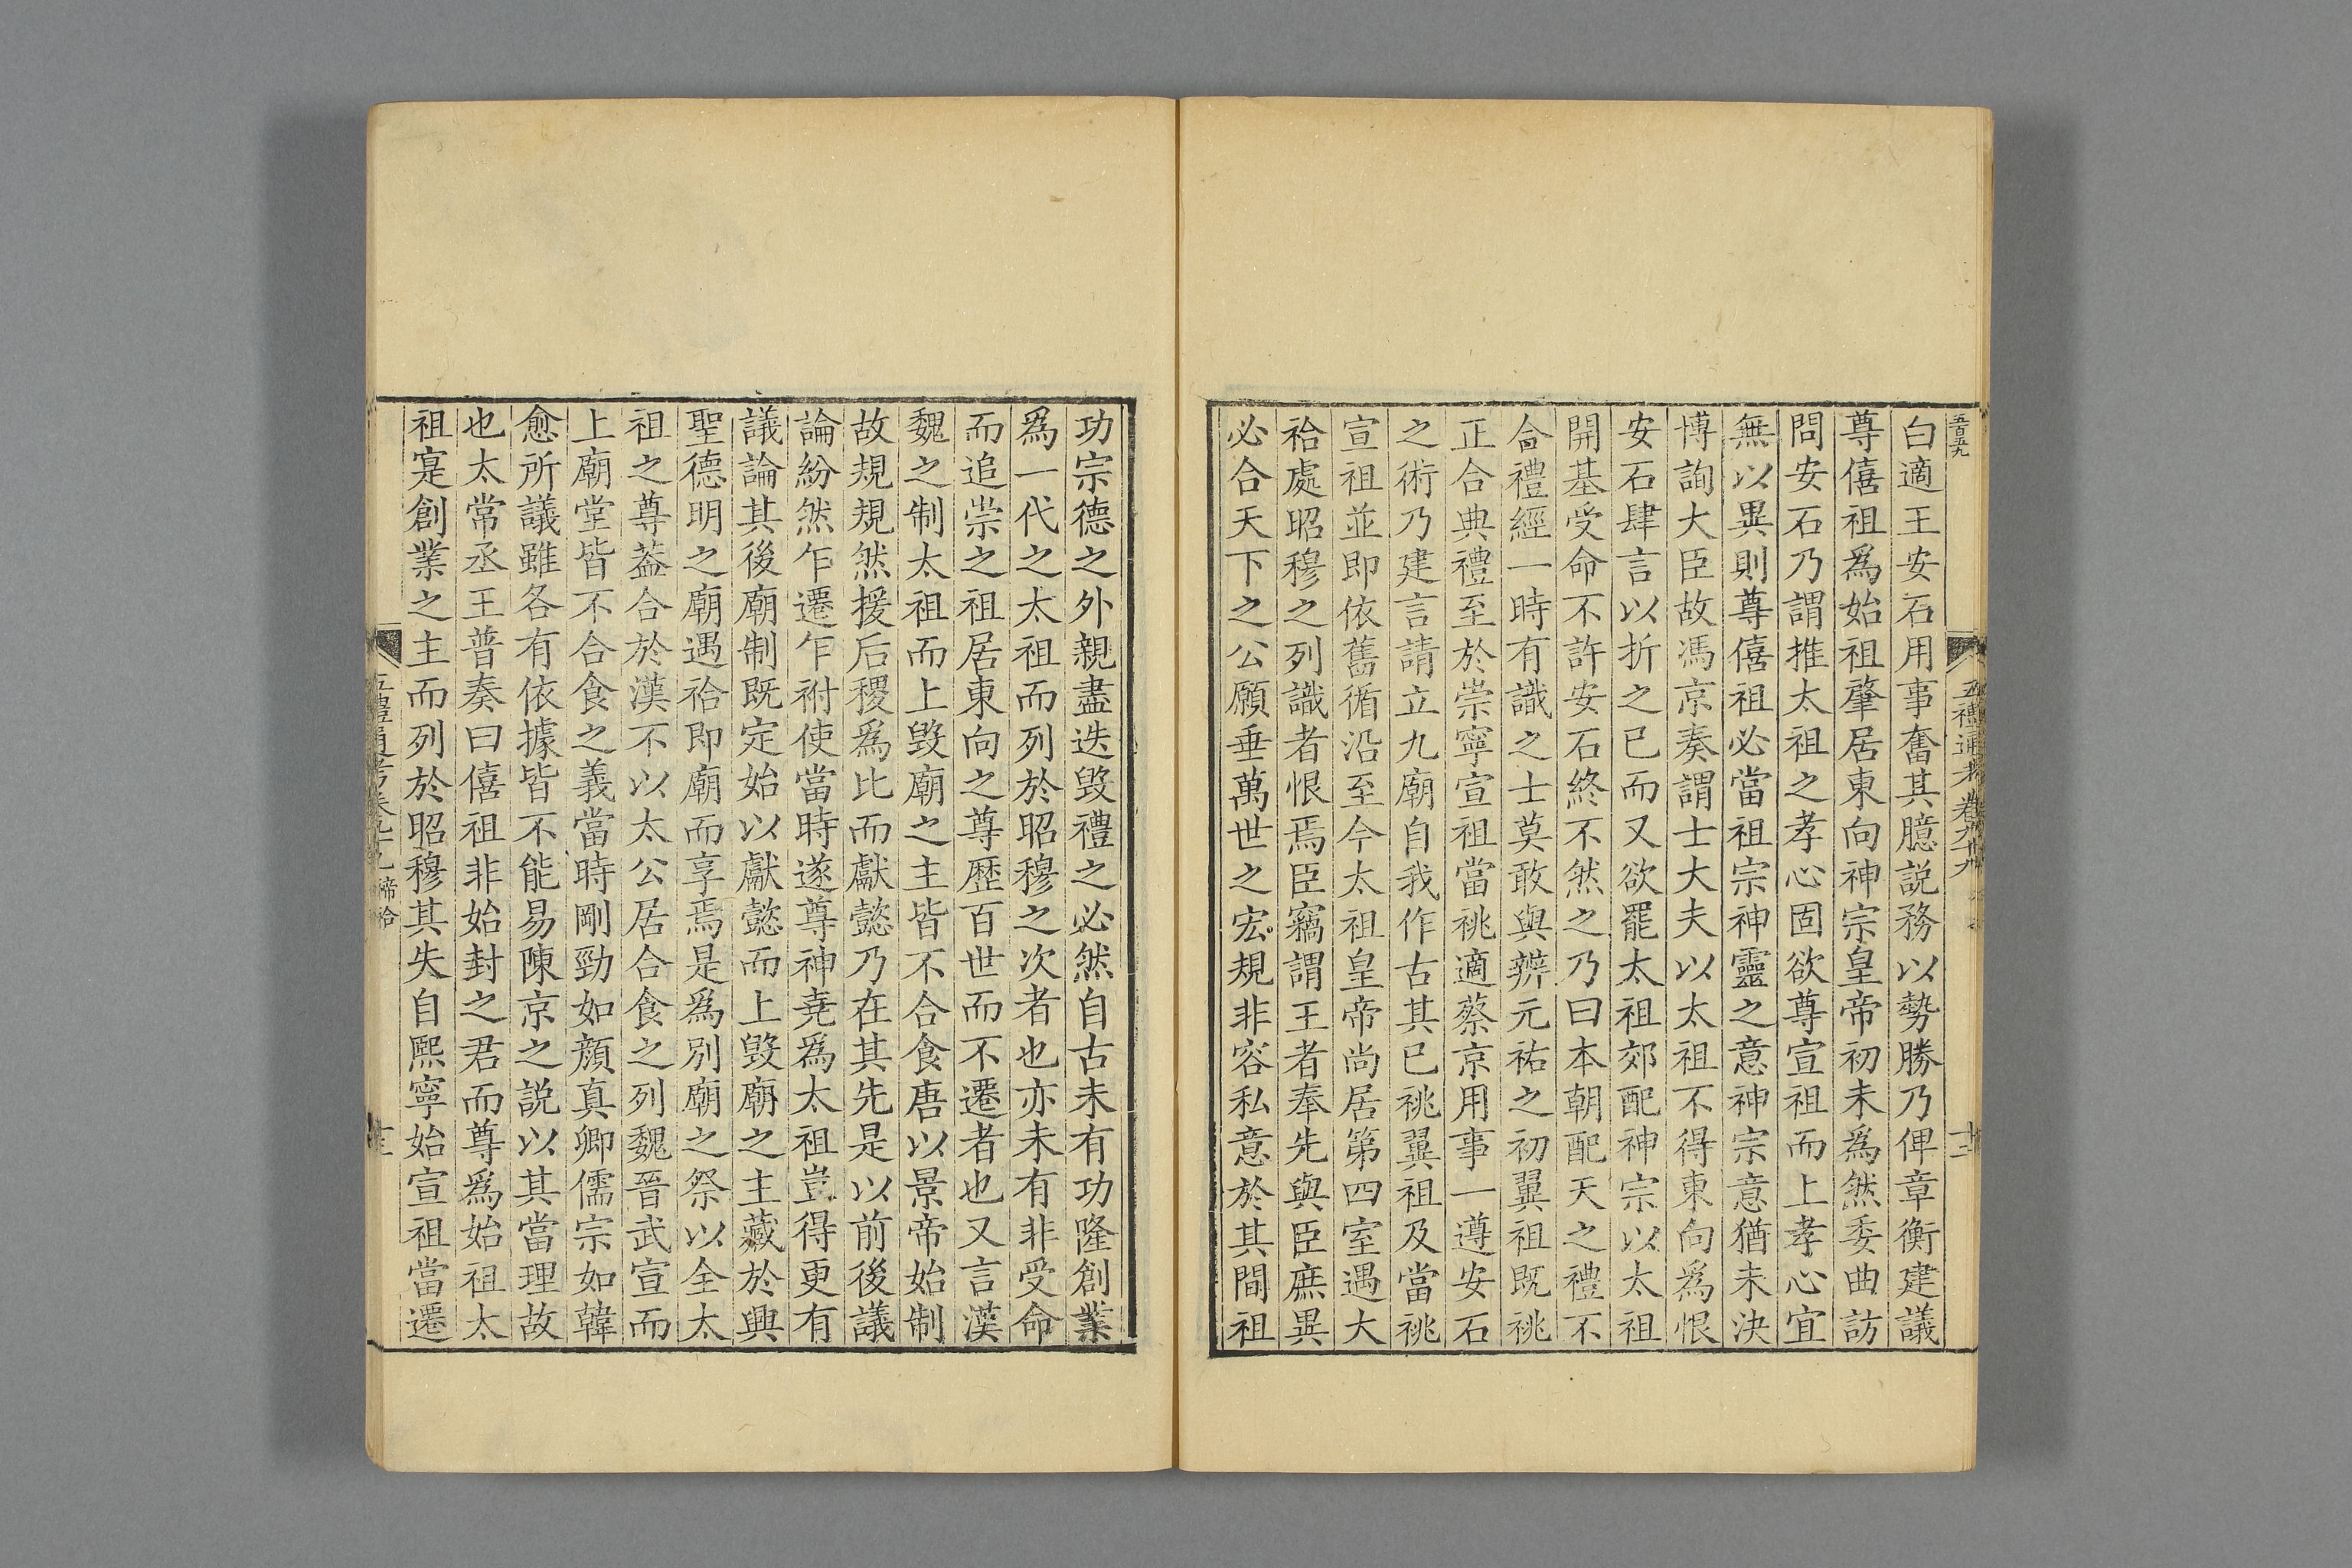 五百九
五禮通考卷九十九
十二
白適王安石用事奮其臆説務以勢勝乃俾章衡建議
尊僖祖爲始祖肇居東向神宗皇帝初未爲然委曲訪
問安石乃謂推太祖之孝心固欲尊宣祖而上孝心宜
無以異則尊僖祖必當祖宗神靈之意神宗意猶未決
博詢大臣故馮京奏謂士大夫以太祖不得東向爲恨
安石肆言以折之已而又欲罷太祖郊配神宗以太祖
開基受命不許安石終不然之乃曰本朝配天之禮不
合禮經一時有識之士莫敢與辨元祐之初翼祖既祧
正合典禮至於崇寧宣祖當祧適蔡京用事一遵安石
之術乃建言請立九廟自我作古其已祧翼祖及當祧
宣祖並即依舊循沿至今太祖皇帝尚居第四室遇大
祫處昭穆之列識者恨焉臣竊謂王者奉先與臣庶異
必合天下之公願垂萬世之宏規非容私意於其間祖
功宗德之外親盡迭毀禮之必然自古未有功隆創業
爲一代之太祖而列於昭穆之次者也亦未有非受命
而追崇之祖居東向之尊歴百世而不遷者也又言漢
魏之制太祖而上毀廟之主皆不合食唐以景帝始制
故規規然援后稷爲比而獻懿乃在其先是以前後議
論紛然乍遷乍祔使當時遂尊神堯爲太祖豈得更有
議論其後廟制既定始以獻懿而上毀廟之主藏於興
聖德明之廟遇祫即廟而享焉是爲別廟之祭以全太
祖之尊葢合於漢不以太公居合食之列魏晉武宣而
上廟堂皆不合食之義當時剛勁如顔真卿儒宗如韓
愈所議雖各有依據皆不能易陳京之説以其當理故
也太常丞王普奏曰僖祖非始封之君而尊爲始祖太
祖寔創業之主而列於昭穆其失自熙寧始宣祖當遷
五禮通考卷九十九 禘祫